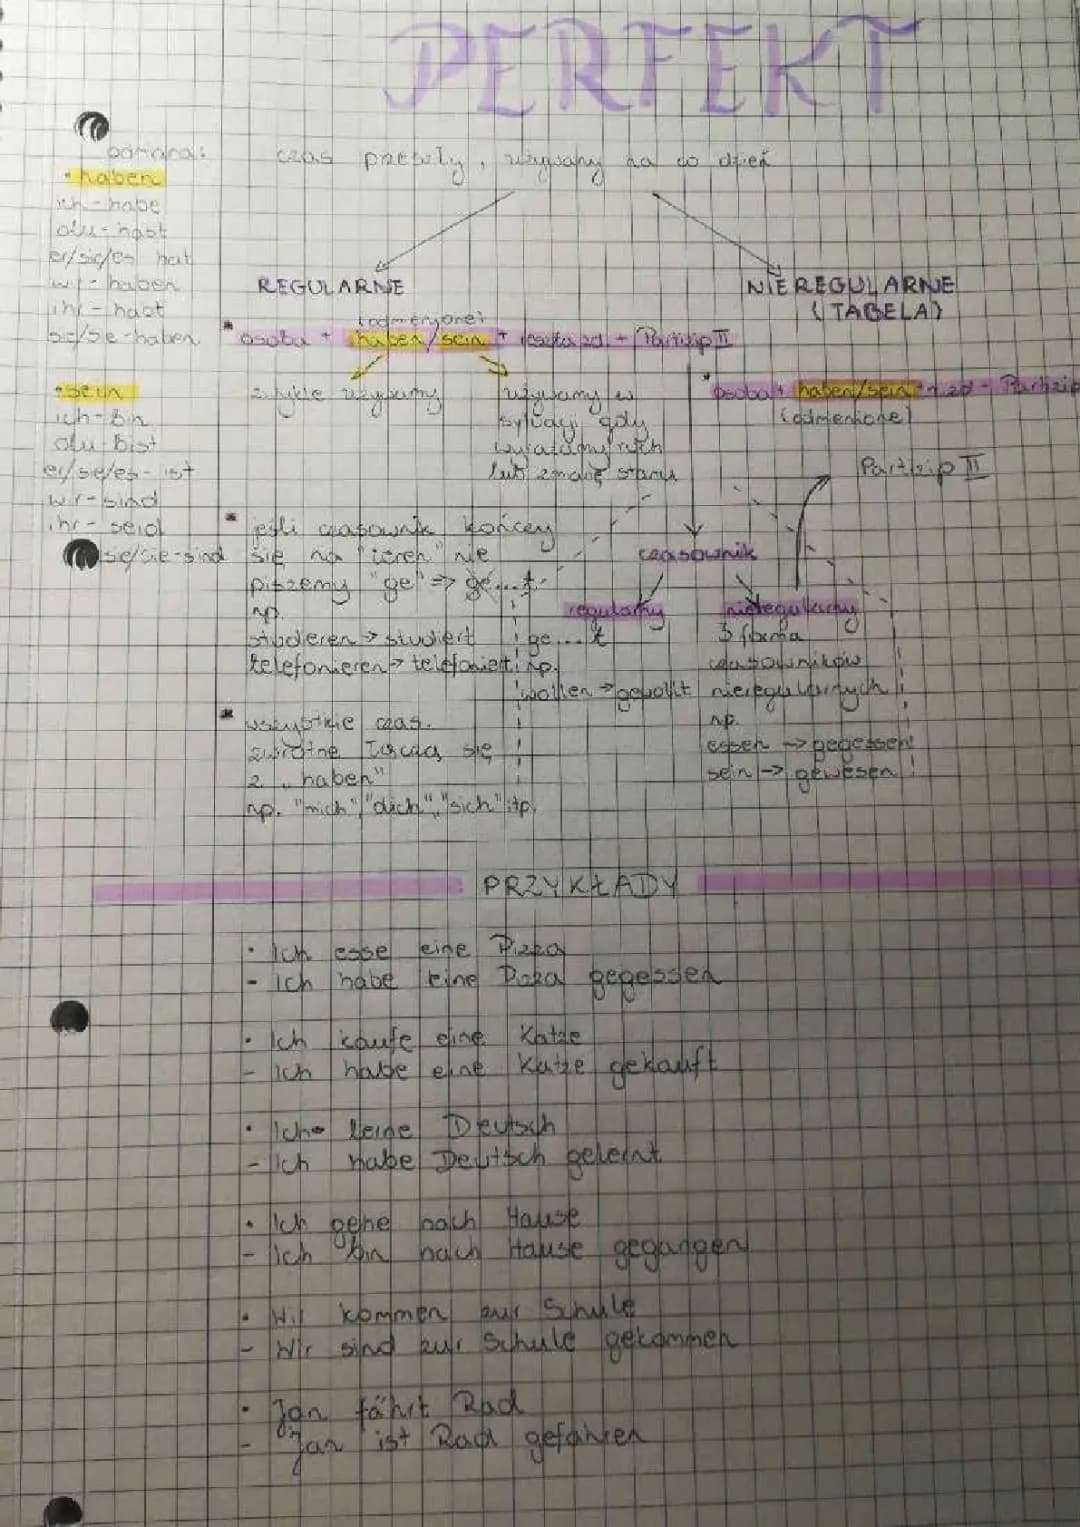 PERFEKT
czas przeszły, używany na co dzień
odmiana:
• haben
ich - habe
du - hast
er/sie/es hat
wir - haben
ihr - habt
sie/Sie - haben
• sein
ich - bin
du - bist
er/sie/es - ist
wir - sind
ihr - seid
sie/Sie - sind
REGULARNE
(odmienione)
* osoba + haben/sein + reszta zd. + Partizip II
zwykle używamy
używamy w
sytuacji gdy
wyrażamy ruch
lub zmianę stanu
* jeśli czasownik kończy
się na "ieren" nie
piszemy "ge" => ge...t
np.
studieren → studiert
telefonieren → telefoniert
* wszystkie czas.
zwrotne łączą się
z "haben"
np. "mich", "dich", "sich" itp.
NIEREGULARNE
(TABELA)
* osoba + haben/sein + r. zd - Partizip
(odmienione)
Partizip II
czasownik
regularny
ge...t
np.
wollen → gewollt
nieregularny
3 forma
czasowników
nieregularnych
np.
essen → gegessen
sein → gewesen
PRZYKŁADY
• Ich esse eine Pizza
- Ich habe eine Pizza gegessen
• Ich kaufe eine Katze
- Ich habe eine Katze gekauft
• Ich lerne Deutsch
- Ich habe Deutsch gelernt
• Ich gehe nach Hause
- Ich bin nach Hause gegangen
• Wir kommen zur Schule
- Wir sind zur Schule gekommen
• Jan fährt Rad
- Jan ist Rad gefahren